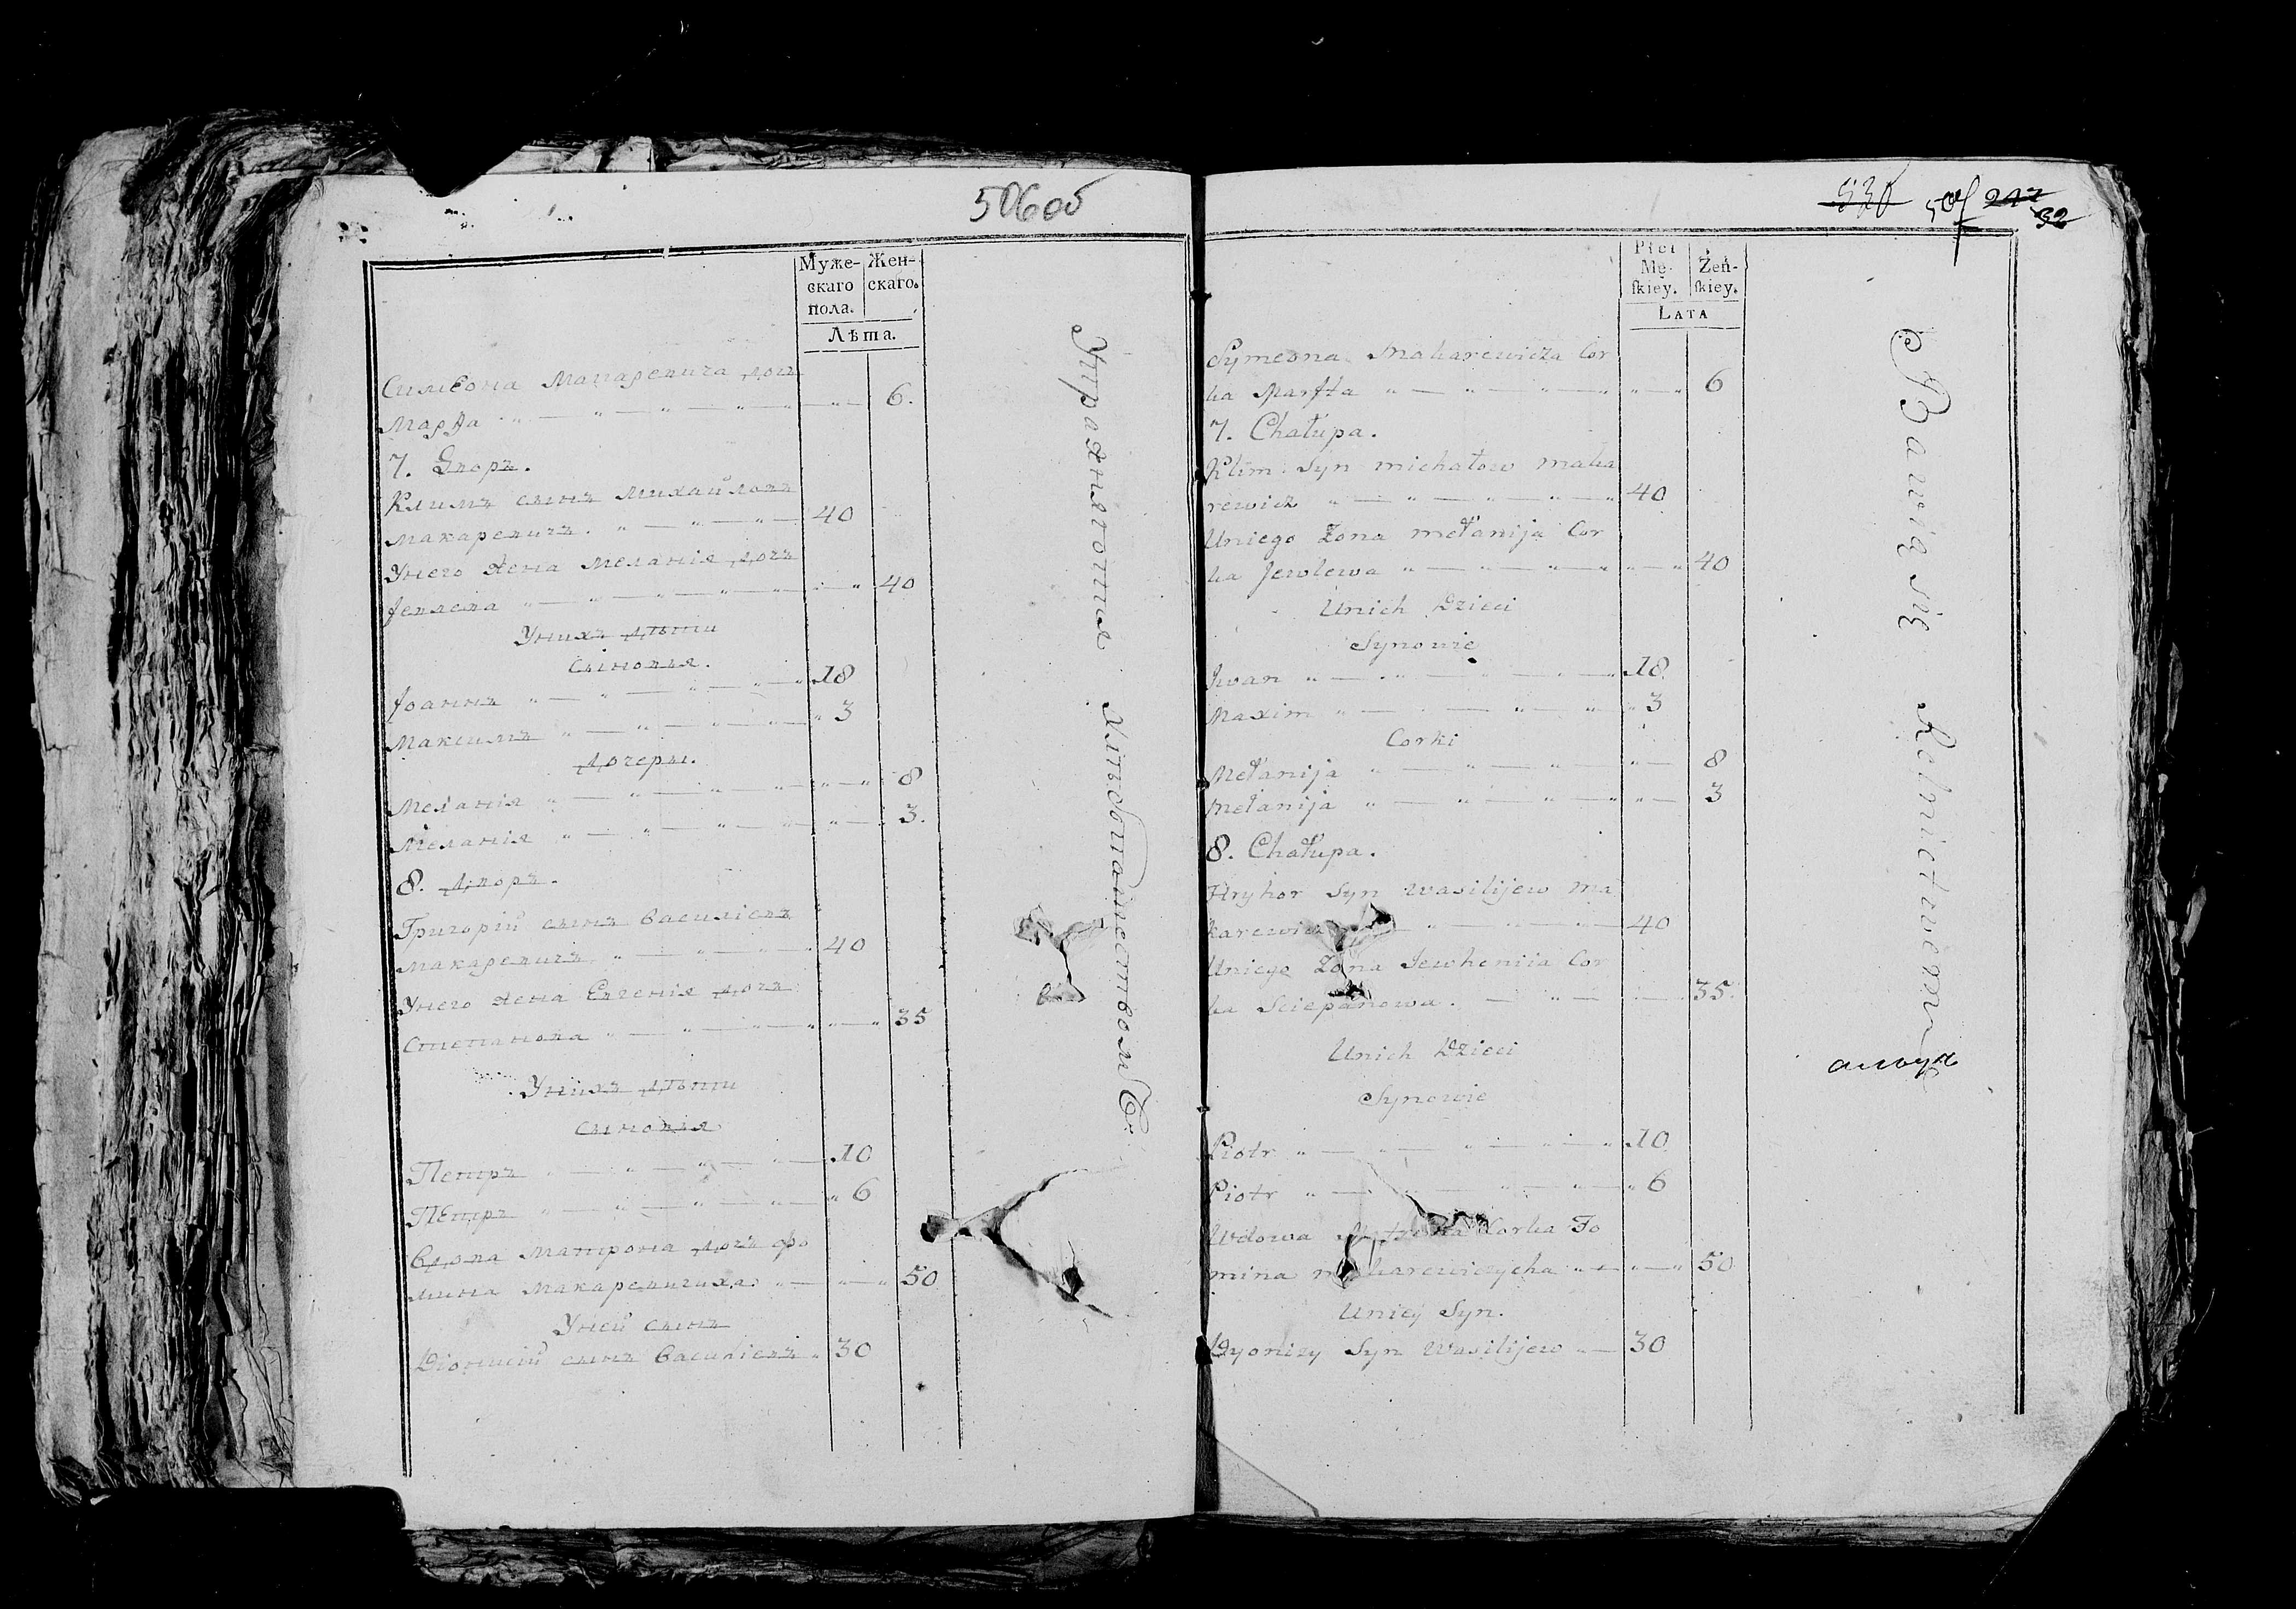 506об
Муже-
скаго
пола.
Жен-
скаго.
Лѣта.
Симеона Макаревича дочь
Марѳа 6.
7. Дворъ.
Климъ сынъ Михайловъ
Макаревичъ. 40
Унего жена Меланія дочь
Іевлева 40
Унихъ дѣти
Сыновья.
Іоаннъ 18
Максимъ 3
Дочеры.
Меланія 8
Меланія 3.
8. Дворъ.
Григорій сынъ Василіевъ
Макаревичъ 40
Унего жена Евгенія дочь
Степанова 35
Унихъ дѣти
Сыновья
Петръ 10
Петръ 6
Вдова Матрона дочь Фо
мина Макаревичиха 50
Уней сынъ
Діонисій сынъ Василіевъ 30
Упражняются хлѣбопашествомъ
530 507 217
32
Płci
Mę-
ſkiey.
Żeń-
ſkiey.
LATA
Symeona Makarewicza Cor
ka Marfta 6
7. Chałupa.
Klim Syn michałow maka
rewicz 40
Uniego Zona mełanija Cor
ka Jewlewa 40
Unich Dzieci
Synowie
Iwan 18
Maxim 3
Corki
Mełanija 8
mełanija 3
8. Chałupa.
Hryhor Syn wasilijew ma
karewicz 40
Uniego Zona Jewheniia Cor
ka Sciepanowa. 35.
Unich Dzieci
Synowie
Piotr 10
Piotr 6
Wdowa Corka Fo
mina makarewiczycha 50
Uniey Syn.
Dyonizy Syn Wasilijew 30
Bawią się Rolnictwem